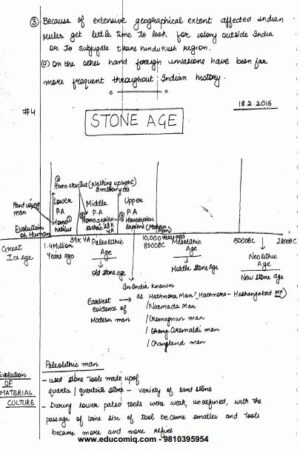 ③ Because of extensive geographical extent affected indian
ruler get little time to look for colony outside India
or to subjugate trans hindukush region.
④ On the other hand foreign invasions have been far
more frequent throughout Indian history.
18.2.2016
#4
STONE AGE
Homo erectus (walking upright)
Lower
P.A
Middle
P.A
Upper
P.A
Homo
habilis
Homosapien
Evolution
of Human
Great
Ice Age
1.4 Million
Years ago
Paleolithic
Age
old stone age
10,000
8000BC
Mesolithic
Age
Middle Stone Age
5000BC
2800BC
Neolithic
Age
New Stone Age
In India known
Earliest
evidence of
Modern man
as Hathnora Man / Hathnora - Hoshangabad MP
/ Narmada Man
/ Cromagnon man
/ Chang
/ Changland man
Evolution
OF
MATERIAL
CULTURE
Paleolithic man
- used stone tools made up of
quartz / quartzite stone - variety of
- During lower paleo tools were weak, unrefined, with the
passage of time size of tool became smaller and tools
became more and more refine
www.educomiq.com - 9810395954